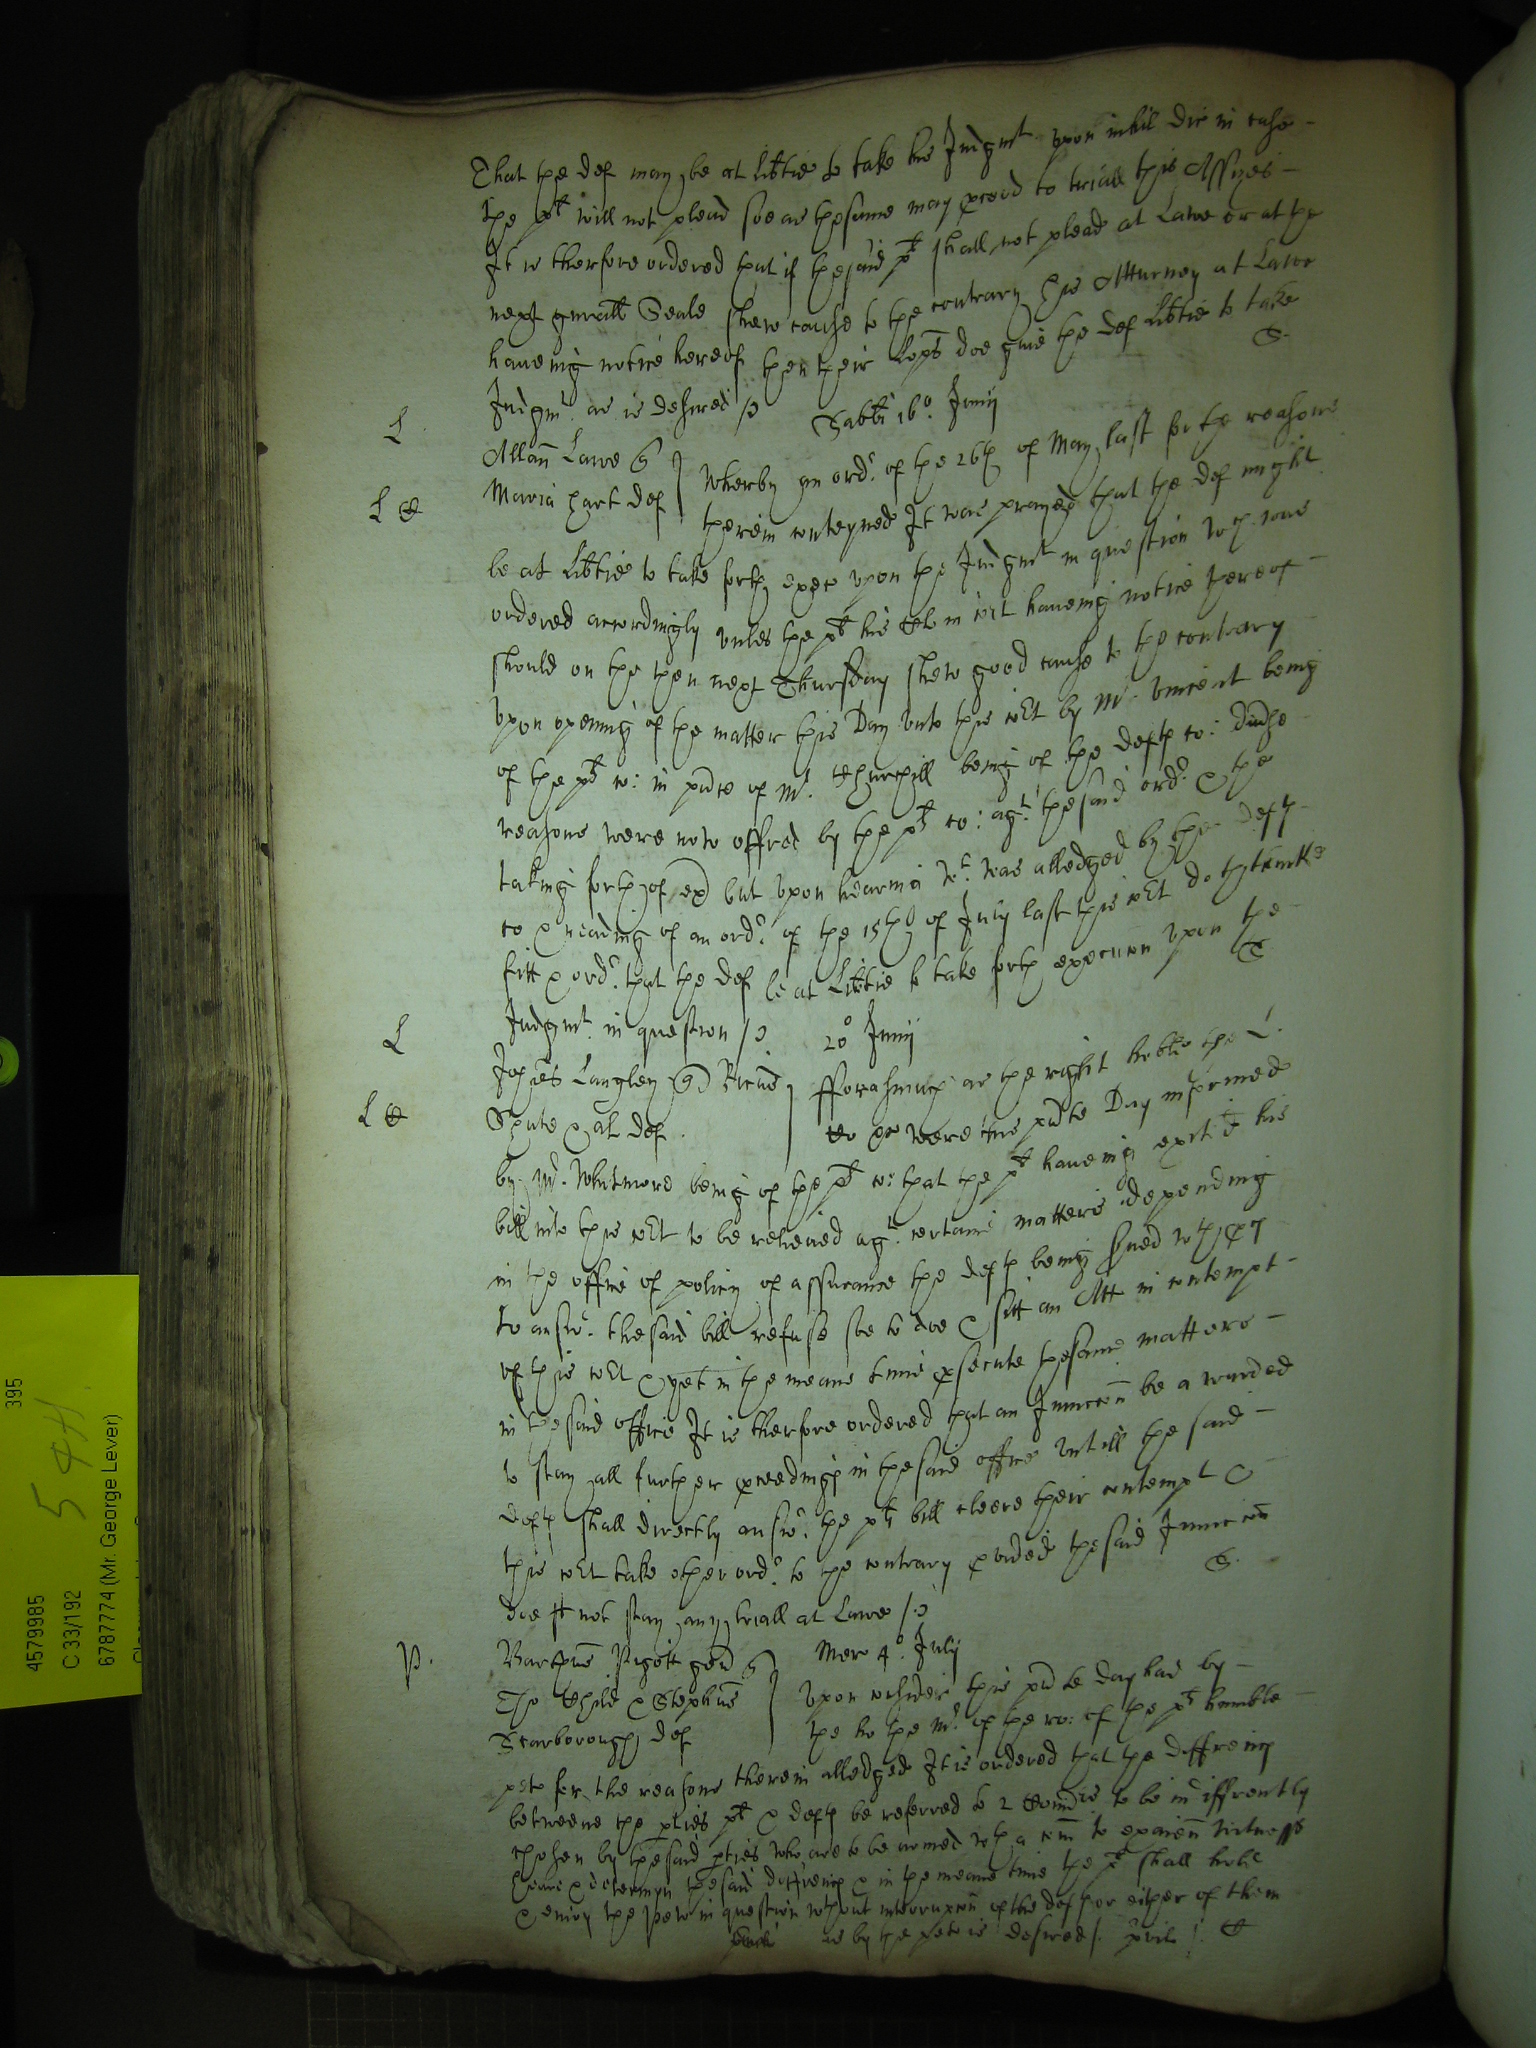 That the def may be at lib^tie to take his Judgm^t upon nihil dic in case
the pl^t will not plead soe as the same may p^rceed to triall this Assizes
It is therfore ordered that if the said pl^t shall not plead at Lawe or at the
next gn^rall Seale shew cause to the contrary his Atturney at Lawe
haveing notice hereof then their Lopps doe give the def lib^tie to take
Judgm^t as is desired /
Sabbti 16º Junij
L
Allan Lawe
Maria Hart def
L
Wherby an ord^r of the 26th of May last for the reasons
therein conteyned It was prayed that the def might
be at lib^tie to take forth exec upon the Judgm^t in question w^ch was
ordered accordingly unles the pl^t his Clk in c^rt haveing notice thereof
should on the then next Thursday shew good cause to the contrary
Upon opening of the matter this Day unto this c^rt by M^r Vincent being
of the pl^ts co: in p^rnce of M^r Churchill being of the def^ts co: divse
reasons were now offred by the pl^ts co: ag^t the said ord^r & the
taking forth of ex but upon hearing w^t was alledged by the def^ts
co & reading of an ord^r of the 15th of July last this c^rt doth thinke
fitt & ord^r that the def be at lib^tie to take forth execucon upon the
Judgm^t in question /
20º Junij
L
Johes Langley Ricus
Shute & al def
L
fforasmuch as the right ho^ble the L
were this p^rnte Day informed
by M^r Whitmore being of the pl^ts co: that the pl^t haveing exhited his
bill into this c^rt to be releived ag^t certaine matters depending
in the office of policy of assurance the def^ts being served w^th p^rces
to answ^r the said bill refuse soe to doe & sitt an Att in contempt
of this c^rt & yet in the meane time p^rsecute the same matters
in the said office It is therfore ordered that an Iniuccon be awarded
to stay all further p^rceedings in the said office untill the said
def^ts shall directly answ^r the pl^ts bill cleere their contempt &
this c^rt take other ord^r to the contrary p^rvided the said Iniuccon
doe not stay any triall at Lawe /
P.
Mer 4º July
Pigott gen
Tho Child & Stephus
Scarborough def
Upon consider this p^rnte day had by
the ho the M^r of the ro: of the pl^ts humble
pet^o for the reasons therein alledged It is ordered that the diffrence
betweene the p^rties pl^t & def^ts be referred to 2 Com^rs to be indiffrently
chosen by the said p^rties who are to be armed w^th a com to exaien witnesses
heare & determyn the said diffrence & in the meane time the pl^t shall hold
& enioy the Pew in question w^thout interrupcon of the def^ts or either of them
as by the pet^o is desired /
4579985
C 33/192
395
6787774 (Mr. George Lever)